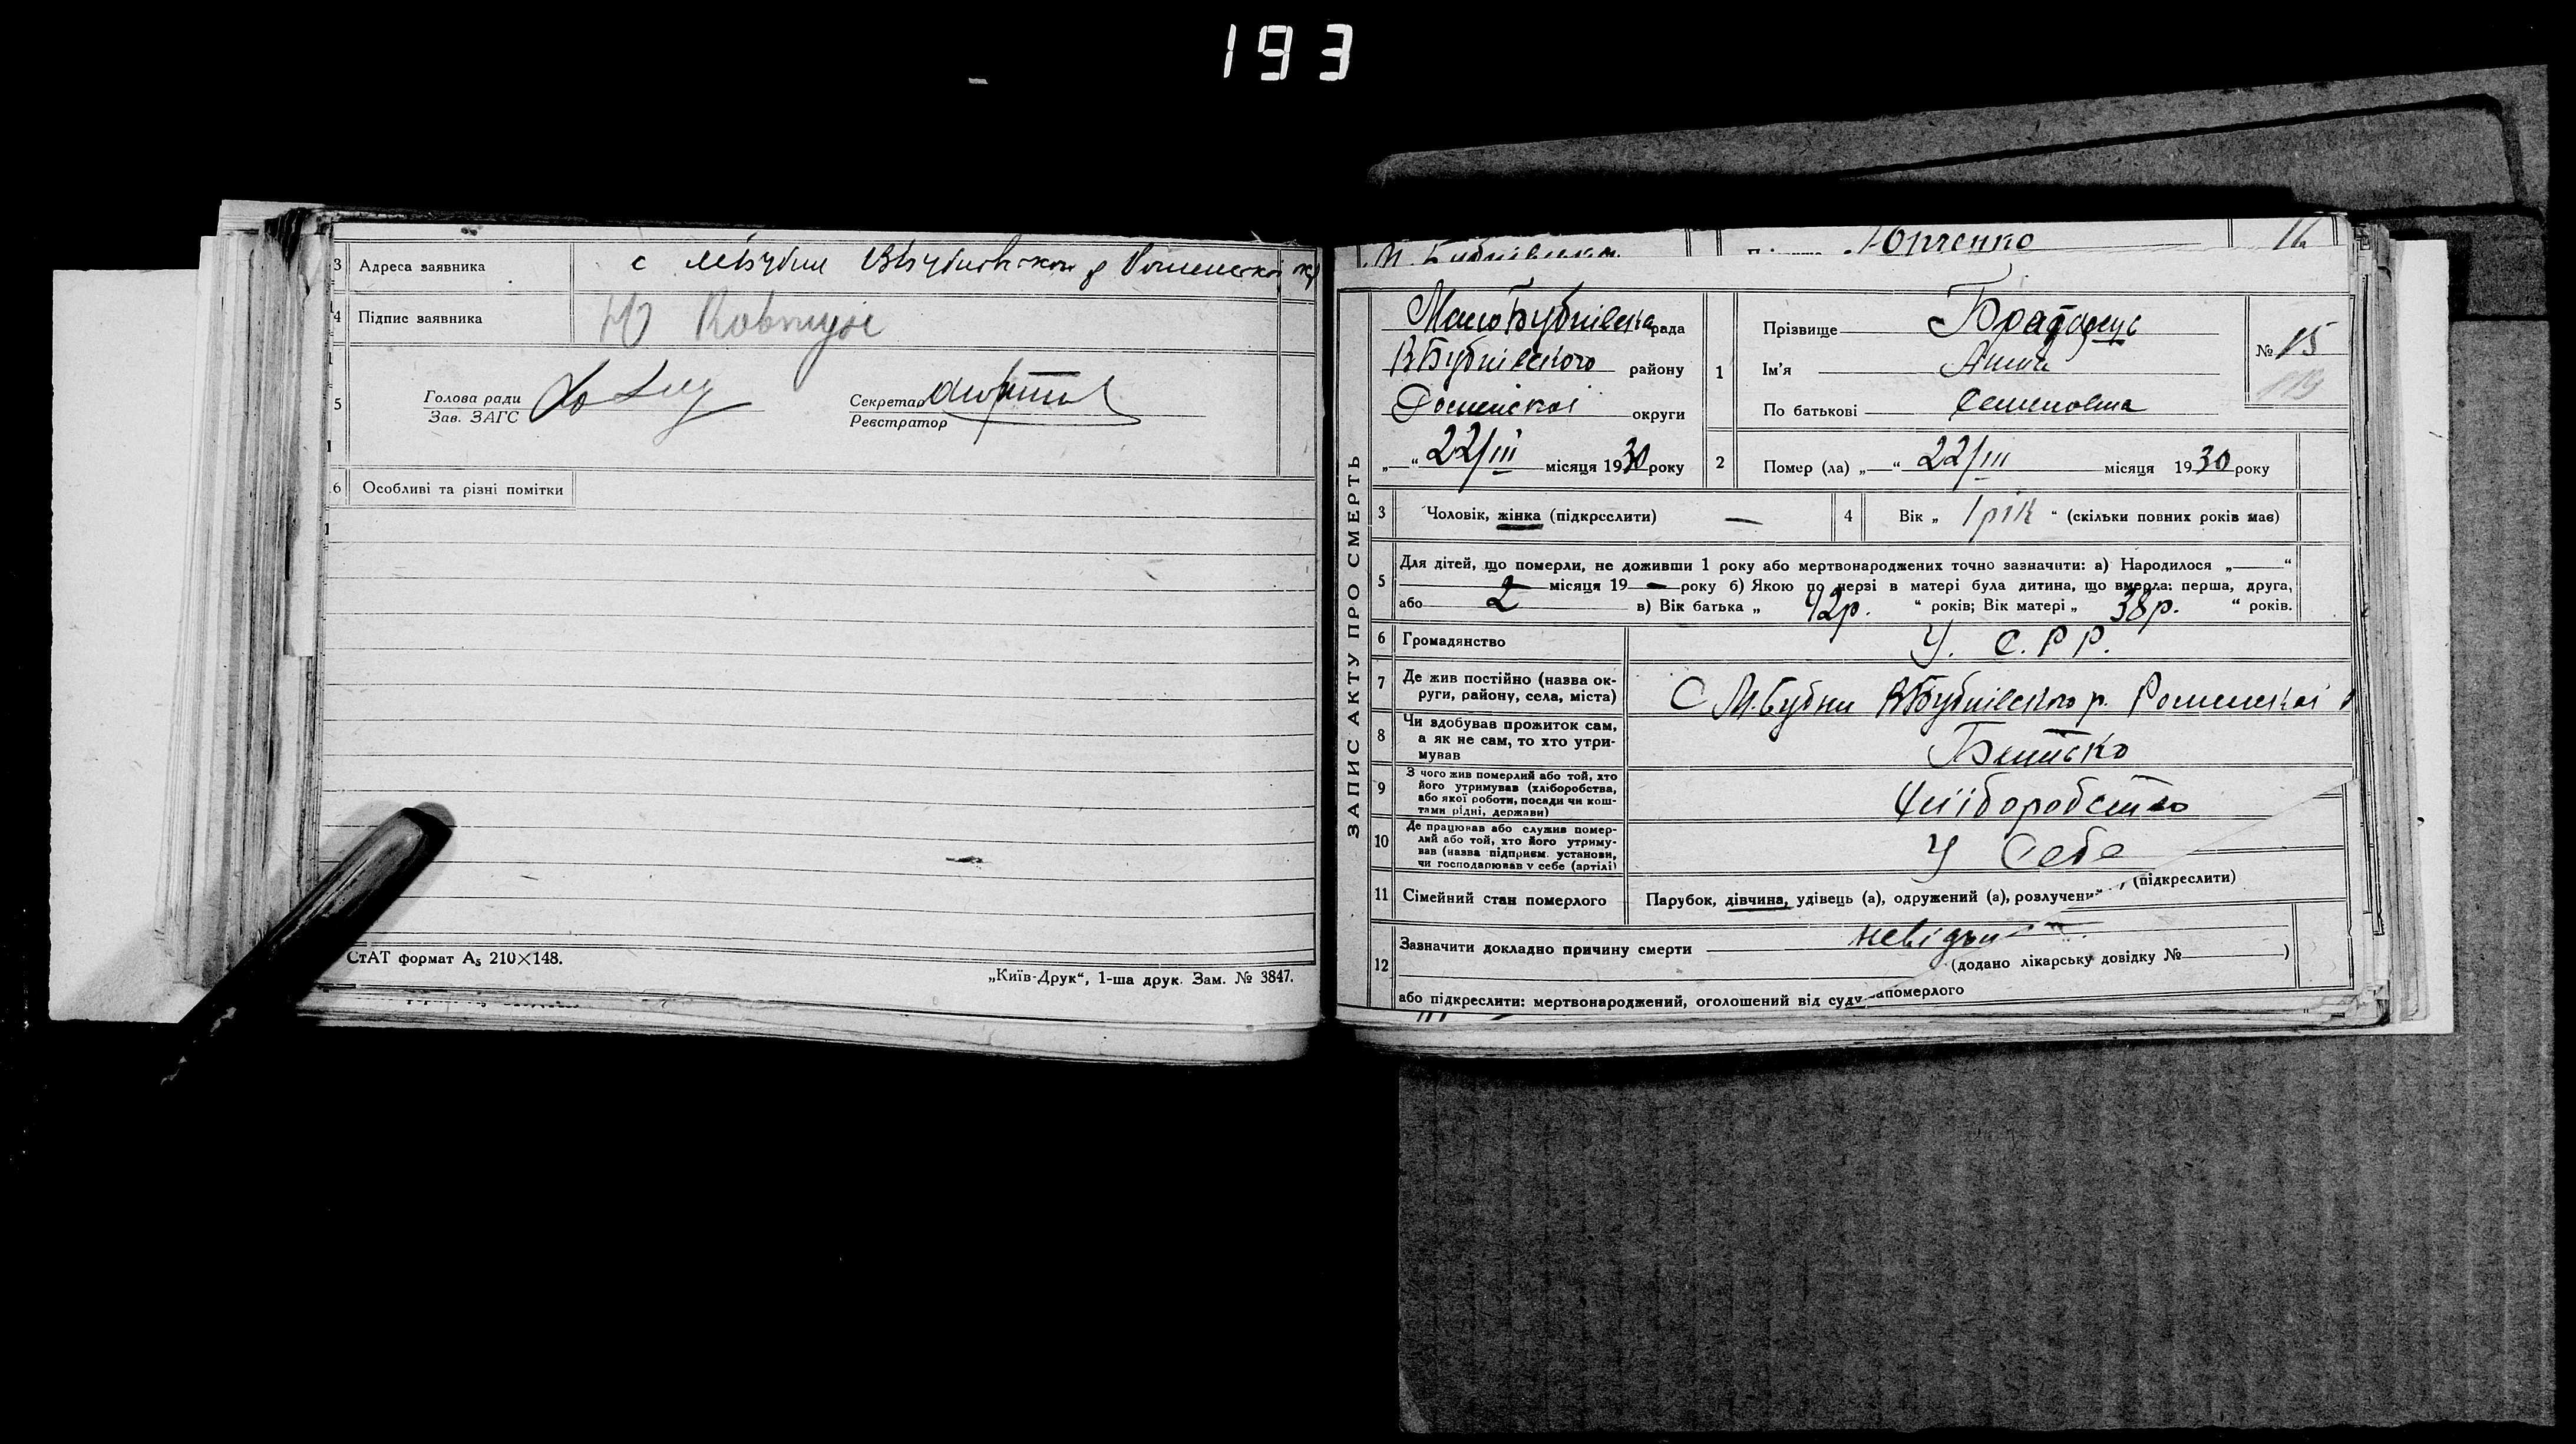 193
3 Адреса заявника с
4 Підпис заявника
5 Голова ради
Зав. ЗАГС
Секретар
Реєстратор
6 Особливі та різні помітки
СтАТ формат А₅ 210×148.
„Київ-Друк“, 1-ша друк. Зам. № 3847.
Юрченко 16
ЗАПИС АКТУ ПРО СМЕРТЬ
МалоБубнівська рада
ВБубнівського району
Роменскої округи
„ “ 22/III місяця 1930 року
1 Прізвище
Ім'я Анна
По батькові Семеновна
№ 15
2 Помер (ла) „ “ 22/III місяця 1930 року
3 Чоловік, жінка (підкреслити) —
4 Вік „ 1 рік “ (скільки повних років має)
5 Для дітей, що померли, не доживши 1 року або мертвонароджених точно зазначити: а) Народилося „ “
місяця 19 — року б) Якою по черзі в матері була дитина, що вмерла: перша, друга,
або 2 в) Вік батька „ 42р. “ років; Вік матері „ 38р. “ років.
6 Громадянство У. С. Р Р.
7 Де жив постійно (назва округи, району, села, міста) С М.Бубни ВБубнівського р. Роменскої
8 Чи здобував прожиток сам,
а як не сам, то хто утримував
9 З чого жив померлий або той, хто
його утримував (хліборобства,
або якої роботи, посади чи коштами рідні, держави) Хліборобство
10 Де працював або служив померлий або той, хто його утримував (назва підприєм. установи,
чи господарював у себе (артілі) У Себе
11 Сімейний стан померлого Парубок, дівчина, удівець (а), одружений (а), розлучени (підкреслити)
12 Зазначити докладно причину смерти невідом
(додано лікарську довідку № )
або підкреслити: мертвонароджений, оголошений від суду за померлого